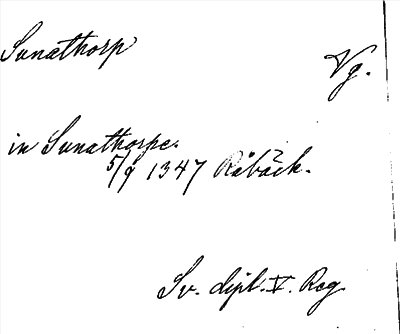 Sunathorp
Vg.
in Sunathorpe.
5/9 1347 Råbäck.
Sv. dipl. V. Reg